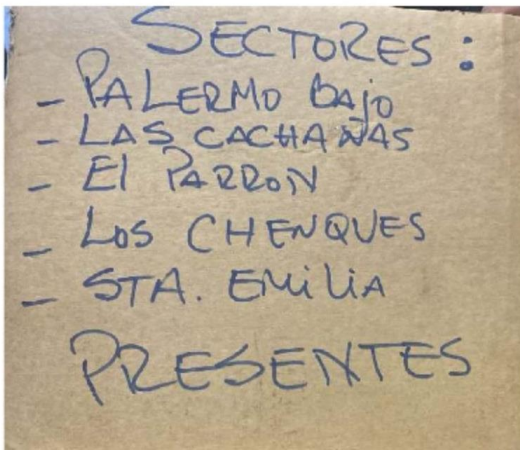 SECTORES:
- PALERMO BAJO
- LAS CACHAÑAS
- El PARRON
- LOS CHENQUES
- STA. EMILIA
PRESENTES